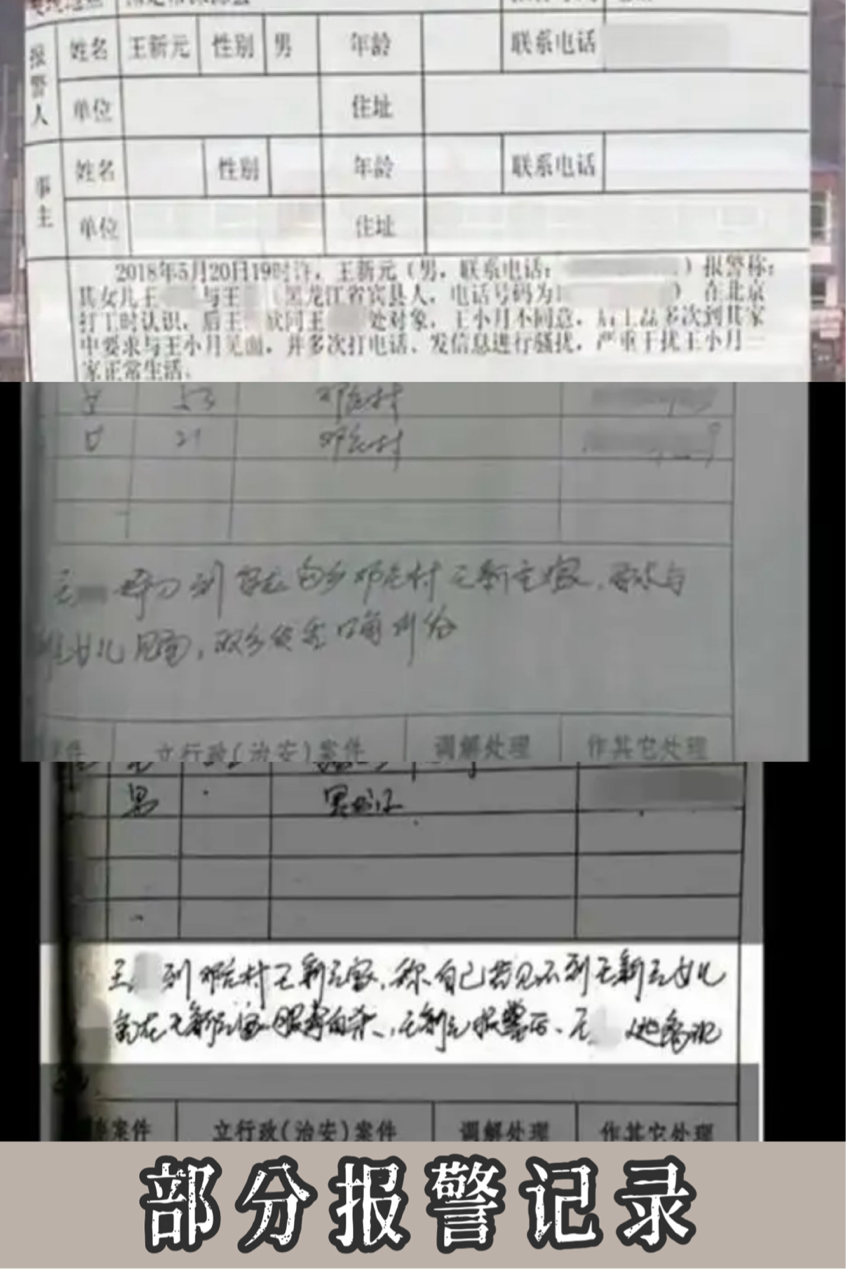 报警人 姓名 王新元 性别 男 年龄 联系电话
单位 住址
事主 姓名 性别 年龄 联系电话
单位 住址
2018年5月20日19时许，王新元（男，联系电话： ）报警称：
其女儿王 与王 （黑龙江省宾县人，电话号码为1 ）在北京
打工时认识，后王 欲同王 处对象，王小月不同意，后王磊多次到其家
中要求与王小月见面，并多次打电话、发信息进行骚扰，严重干扰王小月一
家正常生活。
女 53 邓庄村
女 21 邓庄村
王 到 邓庄村王新元家，要求与
女儿见面，双方发生口角纠纷
件 立行政(治安)案件 调解处理 作其它处理
男
王 到邓庄村王新元家，称自己若见不到王新元女儿
就在王新元家服毒自杀，王新元报警后，王 逃离现
案件 立行政(治安)案件 调解处理 作其它处理
部分报警记录